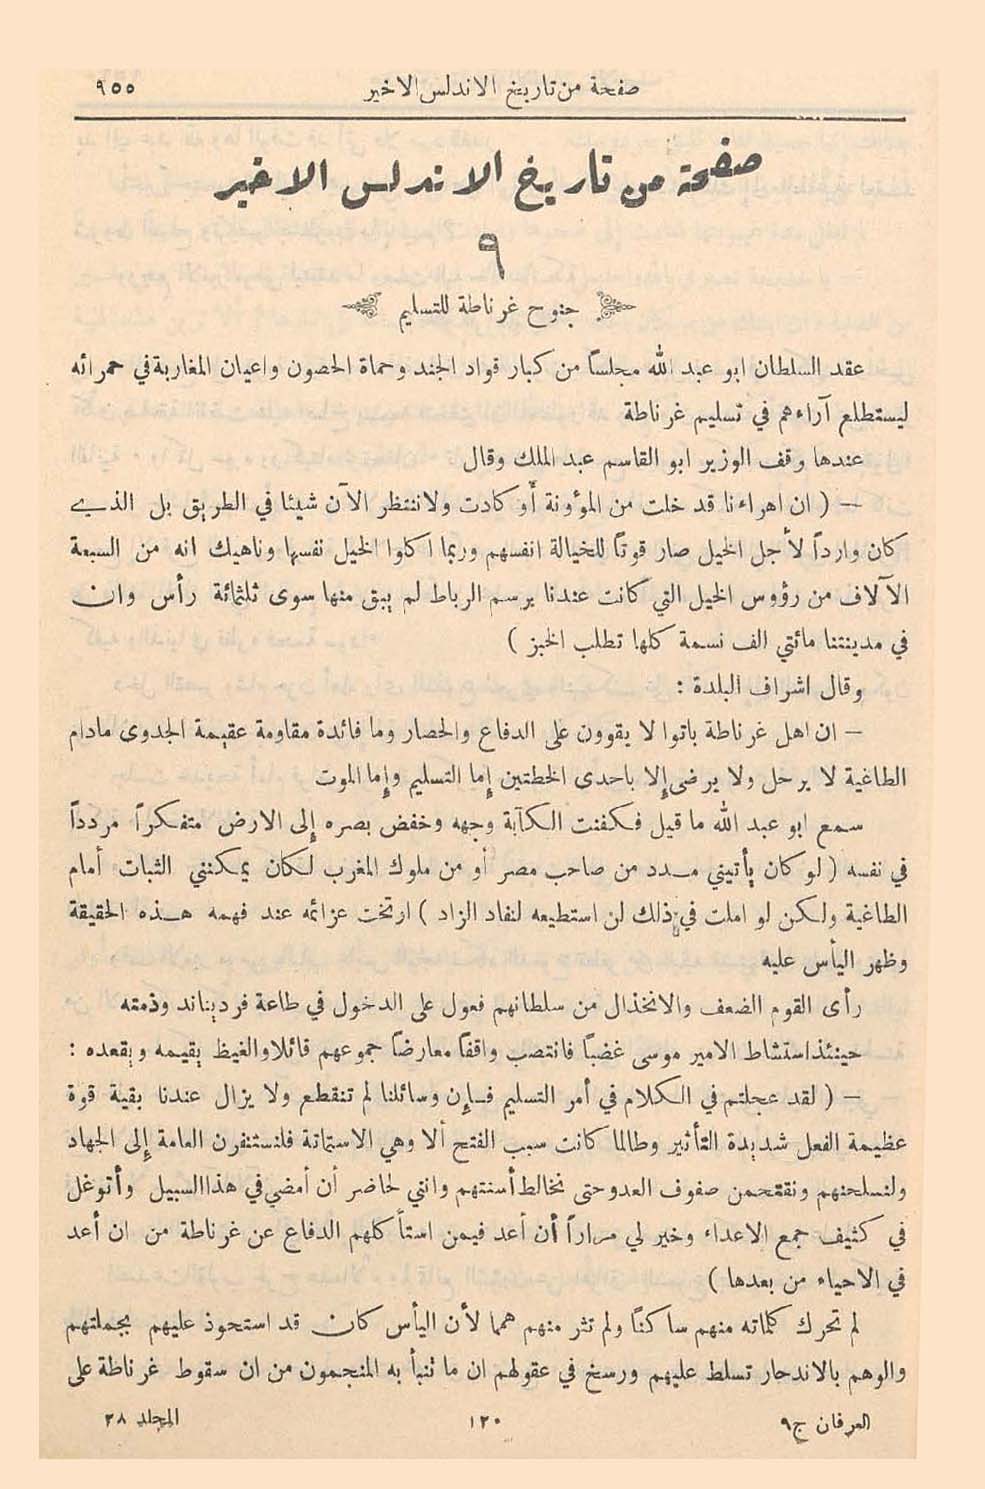 صفحة من تاريخ الاندلس الاخير ٩٥٥
صفحة من تاريخ الاندلس الاخير
٩
جنوح غرناطة للتسليم
عقد السلطان ابو عبد الله مجلساً من كبار قواد الجند وحماة الحصون واعيان المغاربة في حمرائه
ليستطلع آراءهم في تسليم غرناطة
عندها وقف الوزير ابو القاسم عبد الملك وقال
— ( ان اهراءنا قد خلت من المؤونة أو كادت ولا ننتظر الآن شيئا في الطريق بل الذي
كان وارداً لأجل الخيل صار قوتاً للخيالة انفسهم وربما اكلوا الخيل نفسها وناهيك انه من السبعة
الآلاف من رؤوس الخيل التي كانت عندنا برسم الرباط لم يبق منها سوى ثلثمائة رأس وان
في مدينتنا مائتي الف نسمة كلها تطلب الخبز )
وقال اشراف البلدة :
— ان اهل غرناطة باتوا لا يقوون على الدفاع والحصار وما فائدة مقاومة عقيمة الجدوى مادام
الطاغية لا يرحل ولا يرضى إلا باحدى الخطتين إما التسليم وإما الموت
سمع ابو عبد الله ما قيل فكفنت الكآبة وجهه وخفض بصره إلى الارض متفكراً مردداً
في نفسه ( لو كان يأتيني مدد من صاحب مصر أو من ملوك المغرب لكان يمكنني الثبات أمام
الطاغية ولكن لو املت في ذلك لن استطيعه لنفاد الزاد ) ارتخت عزائمه عند فهمه هذه الحقيقة
وظهر اليأس عليه
رأى القوم الضعف والانخذال من سلطانهم فعول على الدخول في طاعة فرديناند وذمته
حينئذ استشاط الامير موسى غضباً فانتصب واقفاً معارضاً جموعهم قائلا والغيظ يقيمه ويقعده :
— ( لقد عجلتم في الكلام في أمر التسليم فإن وسائلنا لم تنقطع ولا يزال عندنا بقية قوة
عظيمة الفعل شديدة التأثير وطالما كانت سبب الفتح ألا وهي الاستماتة فلنستنفرن العامة إلى الجهاد
ولنسلحنهم ونقتحمن صفوف العدو حتى نخالط أسنتهم وانني لحاضر أن أمضي في هذا السبيل وأتوغل
في كثيف جمع الاعداء وخير لي مراراً أن أعد فيمن استأكلهم الدفاع عن غرناطة من ان أعد
في الاحياء من بعدها )
لم تحرك كلماته منهم ساكناً ولم تثر منهم همما لأن اليأس كان قد استحوذ عليهم بجملتهم
والوهم بالاندحار تسلط عليهم ورسخ في عقولهم ان ما تنبأ به المنجمون من ان سقوط غرناطة على
العرفان ج٩ ١٢٠ المجلد ٢٨